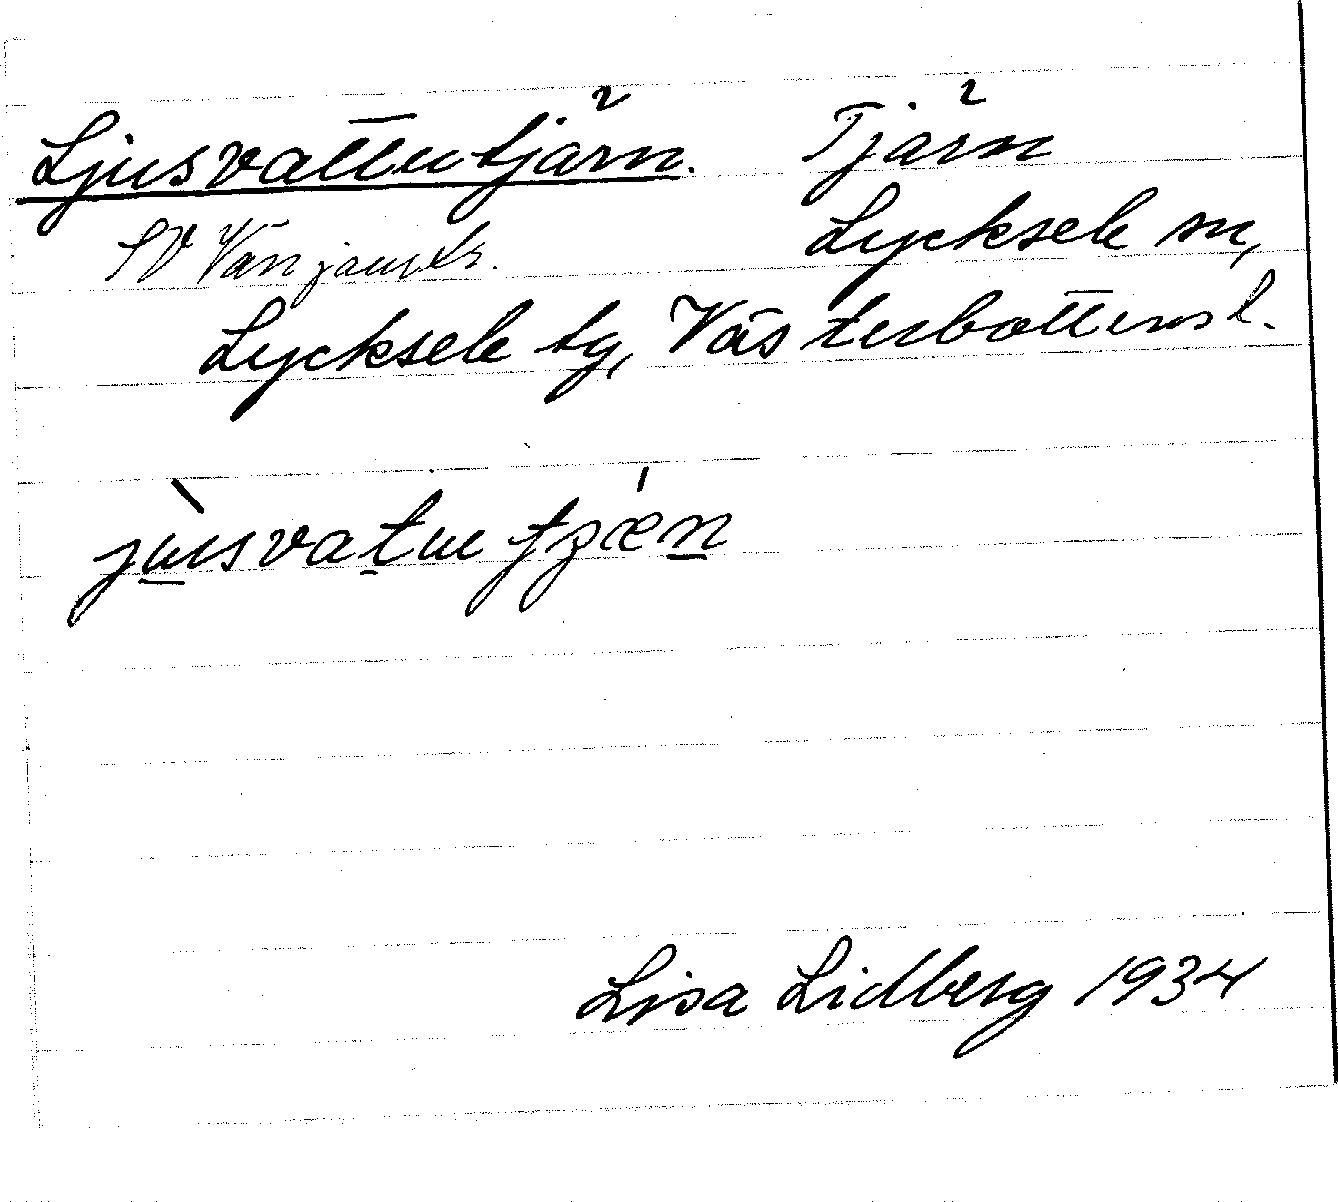 Ljusvattutjärn. Tjärn
SV Vänjaurtr. Lycksele sn,
Lycksele tg, Västerbottens l.
jusvatu tjæn
Lisa Lidberg 1934